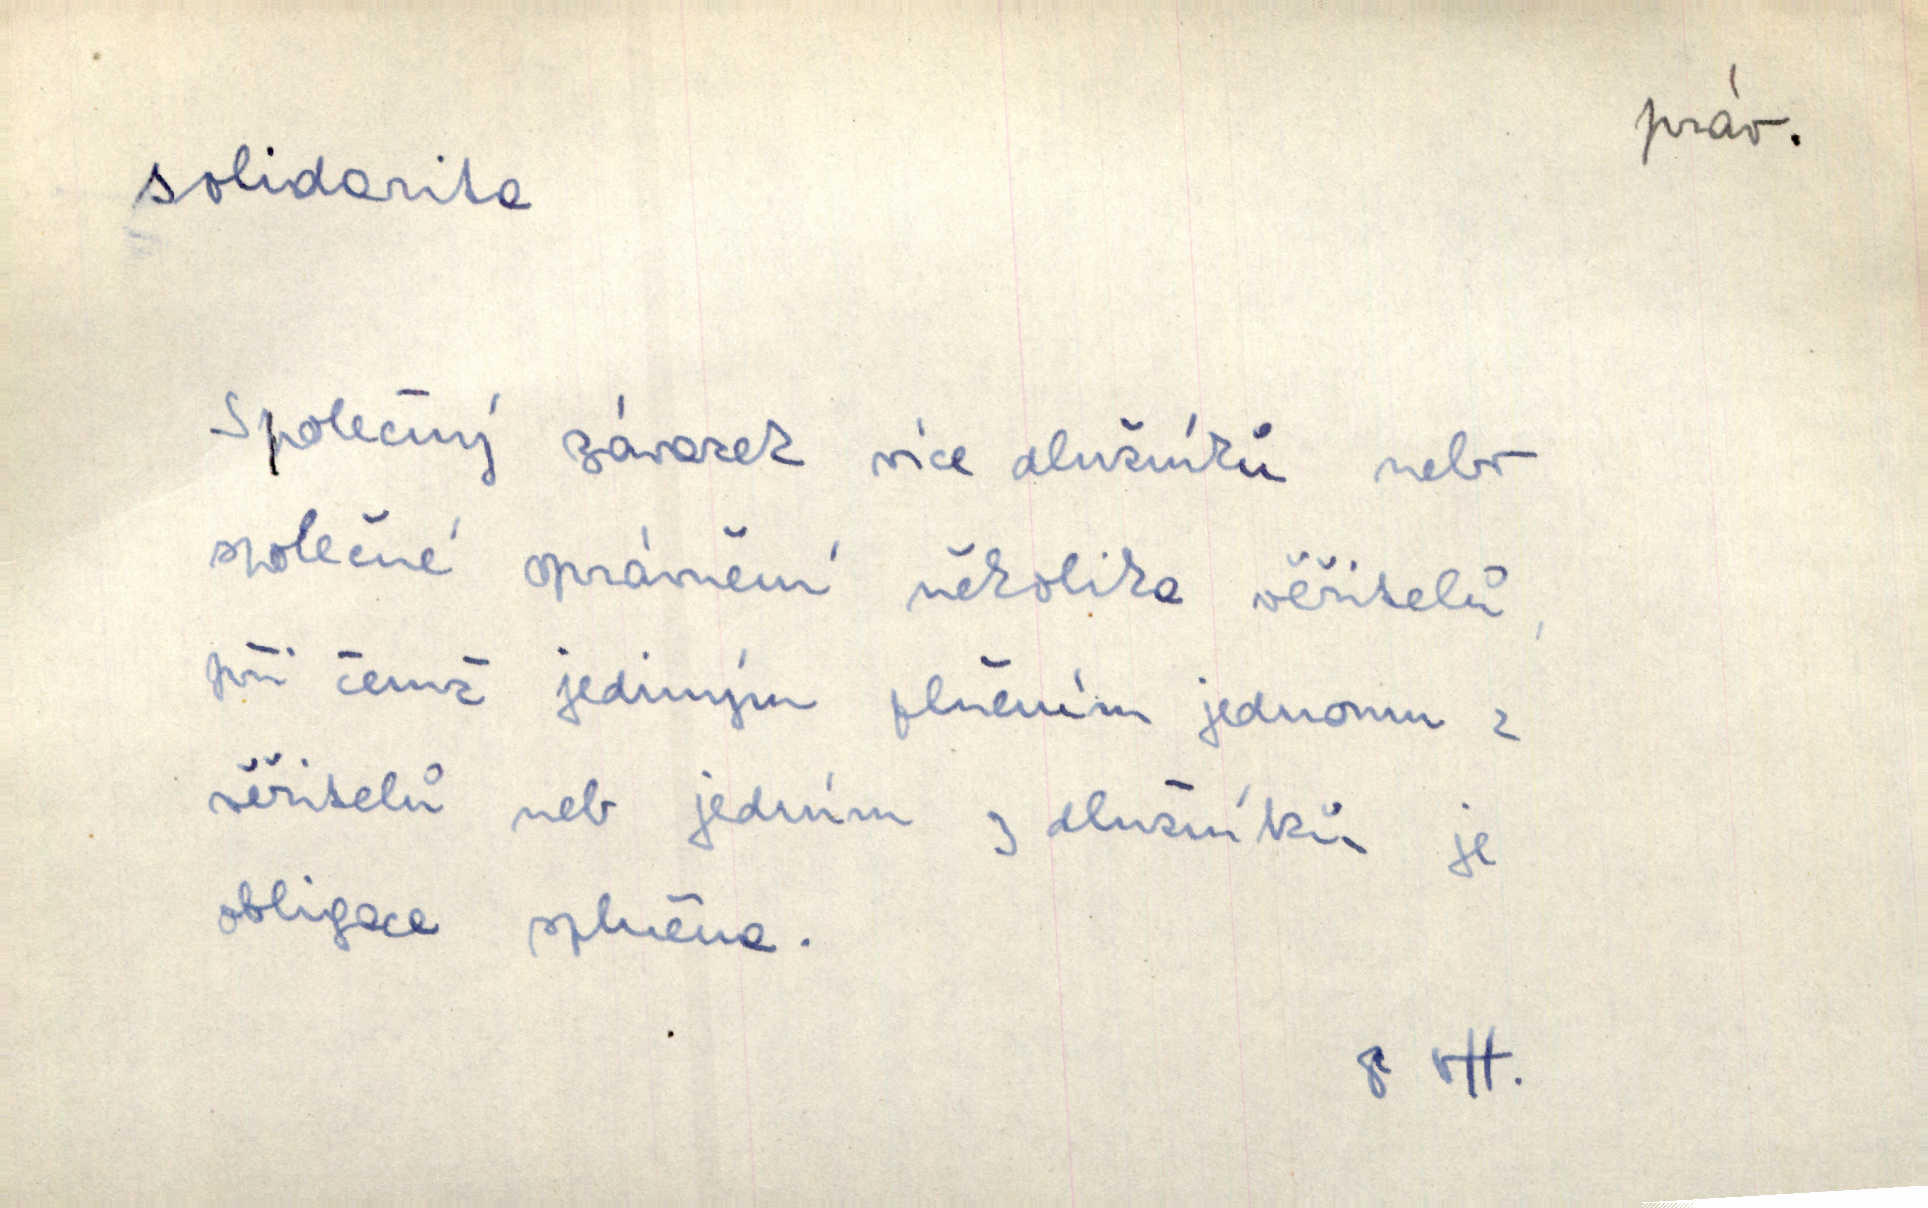 práv.
solidarita
Společný závazek více dlužníků nebo
společné oprávnění několika věřitelů,
při čemž jediným plněním jednomu z
věřitelů neb jedním z dlužníků je
obligace splněna.
Ott.